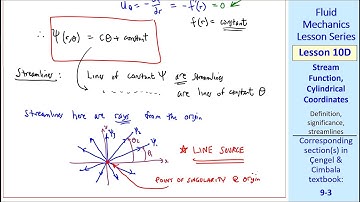 u_θ = -∂ψ/∂r = -f'(r) = 0
f(r) = constant
∴ ψ(r,θ) = Cθ + constant
Streamlines: Lines of constant ψ are streamlines
" " " " " are lines of constant θ
Streamlines here are rays from the origin
ψ₃ ψ₂ ψ₁
θ₂ θ₁
x
* LINE SOURCE
POINT OF SINGULARITY @ origin
Fluid
Mechanics
Lesson Series
Lesson 10D
Stream
Function,
Cylindrical
Coordinates
Definition,
significance,
streamlines
Corresponding
section(s) in
Çengel &
Cimbala
textbook:
9-3